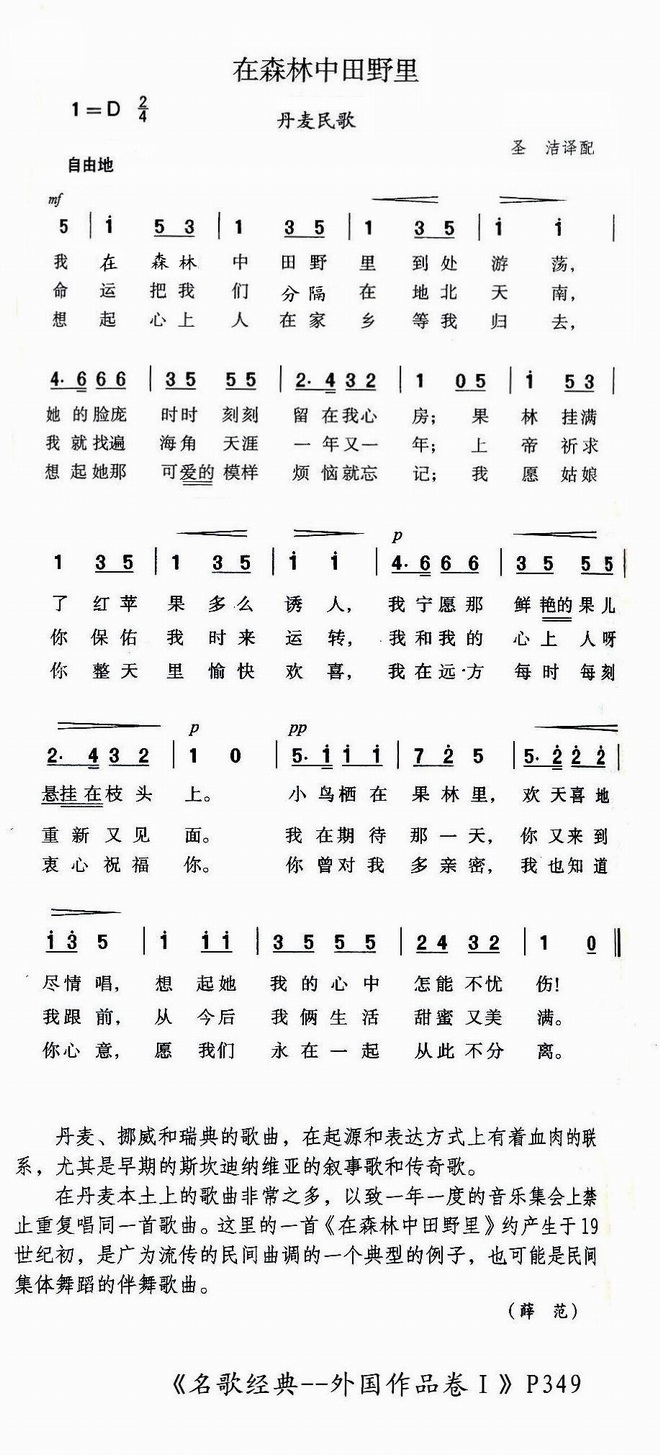 在森林中田野里
1=D 2/4
丹麦民歌
圣 洁译配
自由地
mf
5 | i 5 3 | 1 3 5 | 1 3 5 | i i |
我 在 森林 中 田野 里 到处 游 荡，
命 运 把我 们 分隔 在 地北 天 南，
想 起 心上 人 在家 乡 等我 归 去，
4· 6 6 6 | 3 5 5 5 | 2· 4 3 2 | 1 0 5 | i 5 3 |
她 的脸庞 时时 刻刻 留 在我心 房； 果 林 挂满
我 就找遍 海角 天涯 一 年又一 年； 上 帝 祈求
想 起她那 可爱的 模样 烦 恼就忘 记； 我 愿 姑娘
p
1 3 5 | 1 3 5 | i i | 4· 6 6 6 | 3 5 5 5 |
了 红苹 果 多么 诱 人， 我 宁愿那 鲜艳的 果儿
你 保佑 我 时来 运 转， 我 和我的 心上 人呀
你 整天 里 愉快 欢 喜， 我 在远方 每时 每刻
p pp
2· 4 3 2 | 1 0 | 5· i i i | 7 2 5 | 5· 2 2 2 |
悬挂 在枝头 上。 小 鸟栖在 果林里， 欢 天喜地
重 新又见 面。 我 在期待 那一天， 你 又来到
衷 心祝福 你。 你 曾对我 多亲密， 我 也知道
i 3 5 | i i i | 3 5 5 5 | 2 4 3 2 | 1 0 ‖
尽情 唱， 想 起她 我的心中 怎能不忧 伤！
我跟 前， 从 今后 我俩生活 甜蜜又美 满。
你心 意， 愿 我们 永在一起 从此不分 离。
丹麦、挪威和瑞典的歌曲，在起源和表达方式上有着血肉的联
系，尤其是早期的斯坎迪纳维亚的叙事歌和传奇歌。
在丹麦本土上的歌曲非常之多，以致一年一度的音乐集会上禁
止重复唱同一首歌曲。这里的一首《在森林中田野里》约产生于19
世纪初，是广为流传的民间曲调的一个典型的例子，也可能是民间
集体舞蹈的伴舞歌曲。
（薛 范）
《名歌经典--外国作品卷Ⅰ》P349